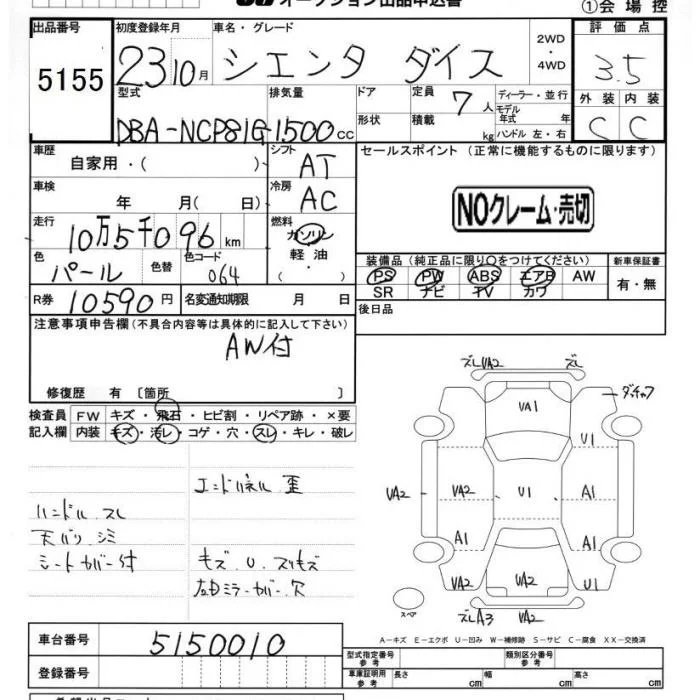 オークション出品申込書
①会場控
出品番号
5155
初度登録年月
23 10月
車名・グレード
シエンタ ダイス
2WD
・
4WD
評価点
3.5
型式
DBA-NCP81G
排気量
1500cc
ドア
形状
定員
7人
積載
kg
ディーラー・並行
モデル
年式 年
ハンドル 左・右
外装 内装
C C
車歴
自家用・( )
シフト
AT
セールスポイント (正常に機能するものに限ります)
NOクレーム・売切
車検
年 月( 日)
冷房
AC
走行
10万5千096km
燃料
ガソリン
軽油
・
色
パール
色替
色コード
064
装備品(純正品に限り○をつけてください)
PS PW ABS エアB AW
SR ナビ TV カワ
新車保証書
有・無
R券
10590円
名変通知期限 月 日
後日品
注意事項申告欄(不具合内容等は具体的に記入して下さい)
AW付
修復歴 有 〔箇所 〕
検査員
記入欄
FW キズ・飛石・ヒビ割・リペア跡・×要
内装 キズ・汚レ・コゲ・穴・スレ・キレ・破レ
エンドパネル 歪
ハンドル スレ
天バリ シミ
シートカバー付
キズ U スリキズ
左ドミラーカバー穴
ズレUA2 ズレ
UA1
ダッチャク
U1
UA2 UA2 U1 A1
A1 A1
UA2 UA2 U1
スペア
ズレA3 UA2
A-キズ E-エクボ U-凹み W-補修跡 S-サビ C-腐食 XX-交換済
車台番号
5150010
登録番号
型式指定番号
参考
類別区分番号
参考
車庫証明用
参考
長さ cm
幅 cm
高さ cm